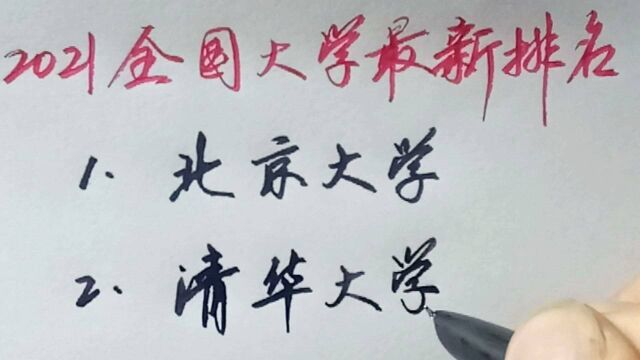 2021全国大学最新排名
1、北京大学
2、清华大学